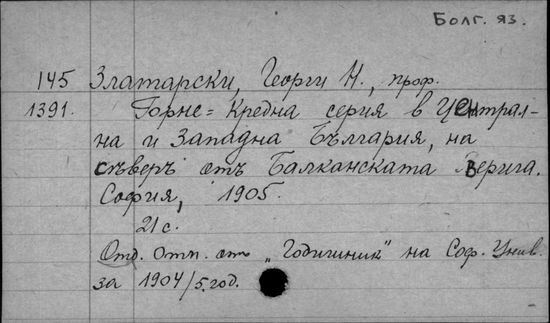 Болг. яз.
145 Златарски, Георги Н., проф.
1391. Горне=Кредна серия в Централ-
на и Западна България, на
северъ отъ Балканската Верига.
София, 1905.
21 с.
Отд. отп. отъ „Годишник" на Соф. Унив.
за 1904/5. год.